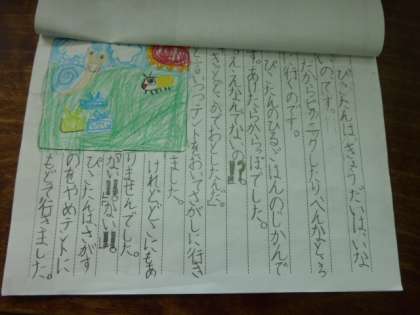 ぴこたんは、きょうだいはいな
いのです。
だからピクニックしたり、へんなところ
へ行くのです。
ぴこたんのひるごはんのじかんで
す。あけたらからっぽでした。
「え、えなんでないの⁉」
きっとどこかでおとしたんだ」
と言いつつテントをおいてさがしに行き
ました。
けれどどこにもあ
りませんでした。
「ない‼ない‼」
ぴこたんはさがす
のをやめテントに
もどって行きました。